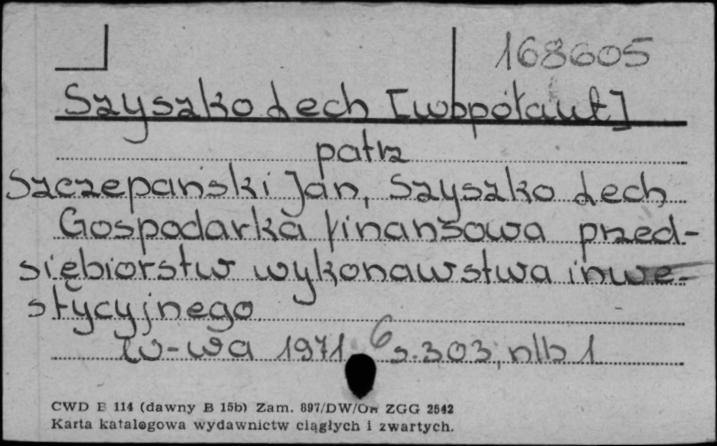 168605
Szyszko Lech [wspólaut]
patrz
Szczepański Jan, Szyszko Lech
Gospodarka finansowa przed-
siębiorstw wykonawstwa inwe-
stycyjnego
W-wa 1971 s. 303, nlb 1
CWD E 114 (dawny B 15b) Zam. 897/DW/On ZGG 2542
Karta katalogowa wydawnictw ciągłych i zwartych.